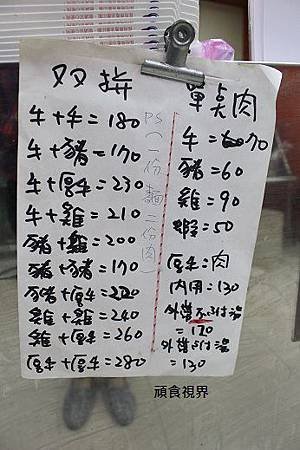 双拚
牛+牛=180
牛+豬=170
牛+厚牛=230
牛+雞=210
豬+雞=200
豬+豬=170
豬+厚牛=220
雞+雞=240
雞+厚牛=260
厚牛+厚牛=280
PS(一份麵二份肉)
單點肉
牛=70
豬=60
雞=90
蝦=50
厚牛=肉
内用=130
外帶不附湯
=120
外帶附湯
=130
頑食視界